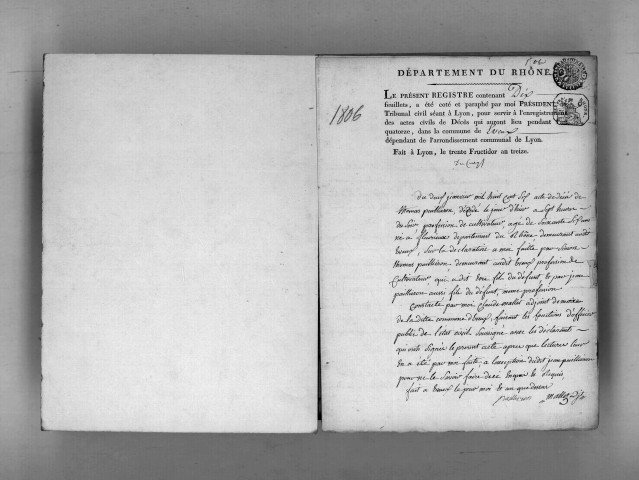 1806
DÉPARTEMENT DU RHÔNE.
LE PRÉSENT REGISTRE contenant Dix
feuillets, a été coté et paraphé par moi PRÉSIDENT
Tribunal civil séant à Lyon, pour servir à l'enregistrement
des actes civils de Décès qui auront lieu pendant
quatorze, dans la commune de Eveux
dépendant de l'arrondissement communal de Lyon.
Fait à Lyon, le trente Fructidor an treize.
Du deux janvier mil huit cent six acte de décès de
thomas décédé le jour d'hier a sept heures
du soir profession de cultivateur agé de soixante
né a fleurieux departement du Rhône demeurant audit
Eveux, sur la déclaration a moi faite par
thomas demeurant audit Eveux profession de
Cultivateur, qui a dit être fils du défunt et par jean
aussi fils du défunt, meme profession
Constaté par moi Claude mallet adjoint du maire
de la ditte commune d'Eveux, faisant les fonctions d'officier
public de l'état civil soussigné avec les déclarants
qui ont signé le present acte apres que lecture leur
en a été par moi faite, a l'exception dudit jean
pour ne le savoir faire de ce enquis et requis
fait a Eveux le jour moi et an que dessus
mallet